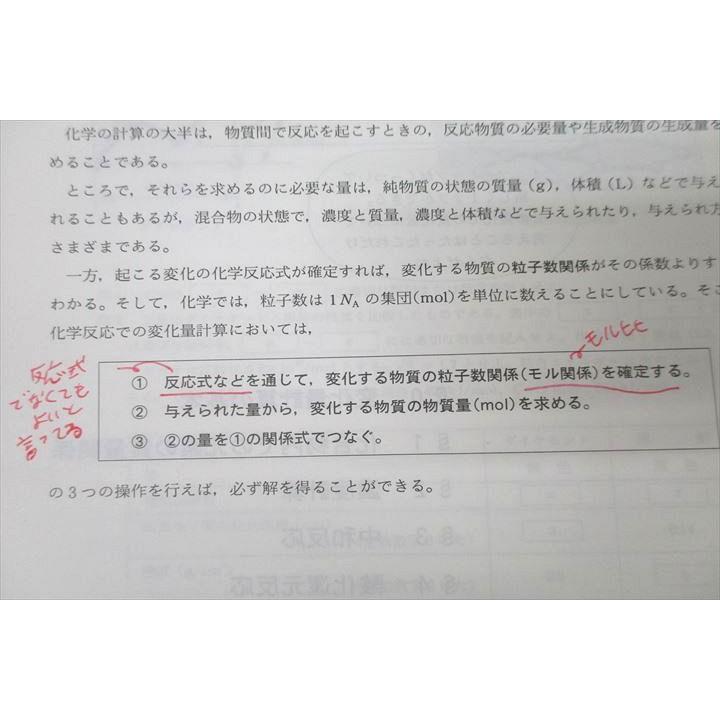 化学の計算の大半は，物質間で反応を起こすときの，反応物質の必要量や生成物質の生成量を
めることである。
ところで，それらを求めるのに必要な量は，純物質の状態の質量（g），体積（L）などで与え
れることもあるが，混合物の状態で，濃度と質量，濃度と体積などで与えられたり，与えられ方
さまざまである。
一方，起こる変化の化学反応式が確定すれば，変化する物質の粒子数関係がその係数よりす
わかる。そして，化学では，粒子数は 1 NA の集団(mol)を単位に数えることにしている。そこ
化学反応での変化量計算においては，
モル比
① 反応式などを通じて，変化する物質の粒子数関係(モル関係)を確定する。
② 与えられた量から，変化する物質の物質量(mol)を求める。
③ ②の量を①の関係式でつなぐ。
反応式
でなくても
よいと
言ってる
の3つの操作を行えば，必ず解を得ることができる。
§ 3 中和反応
§ 4 酸化還元反応